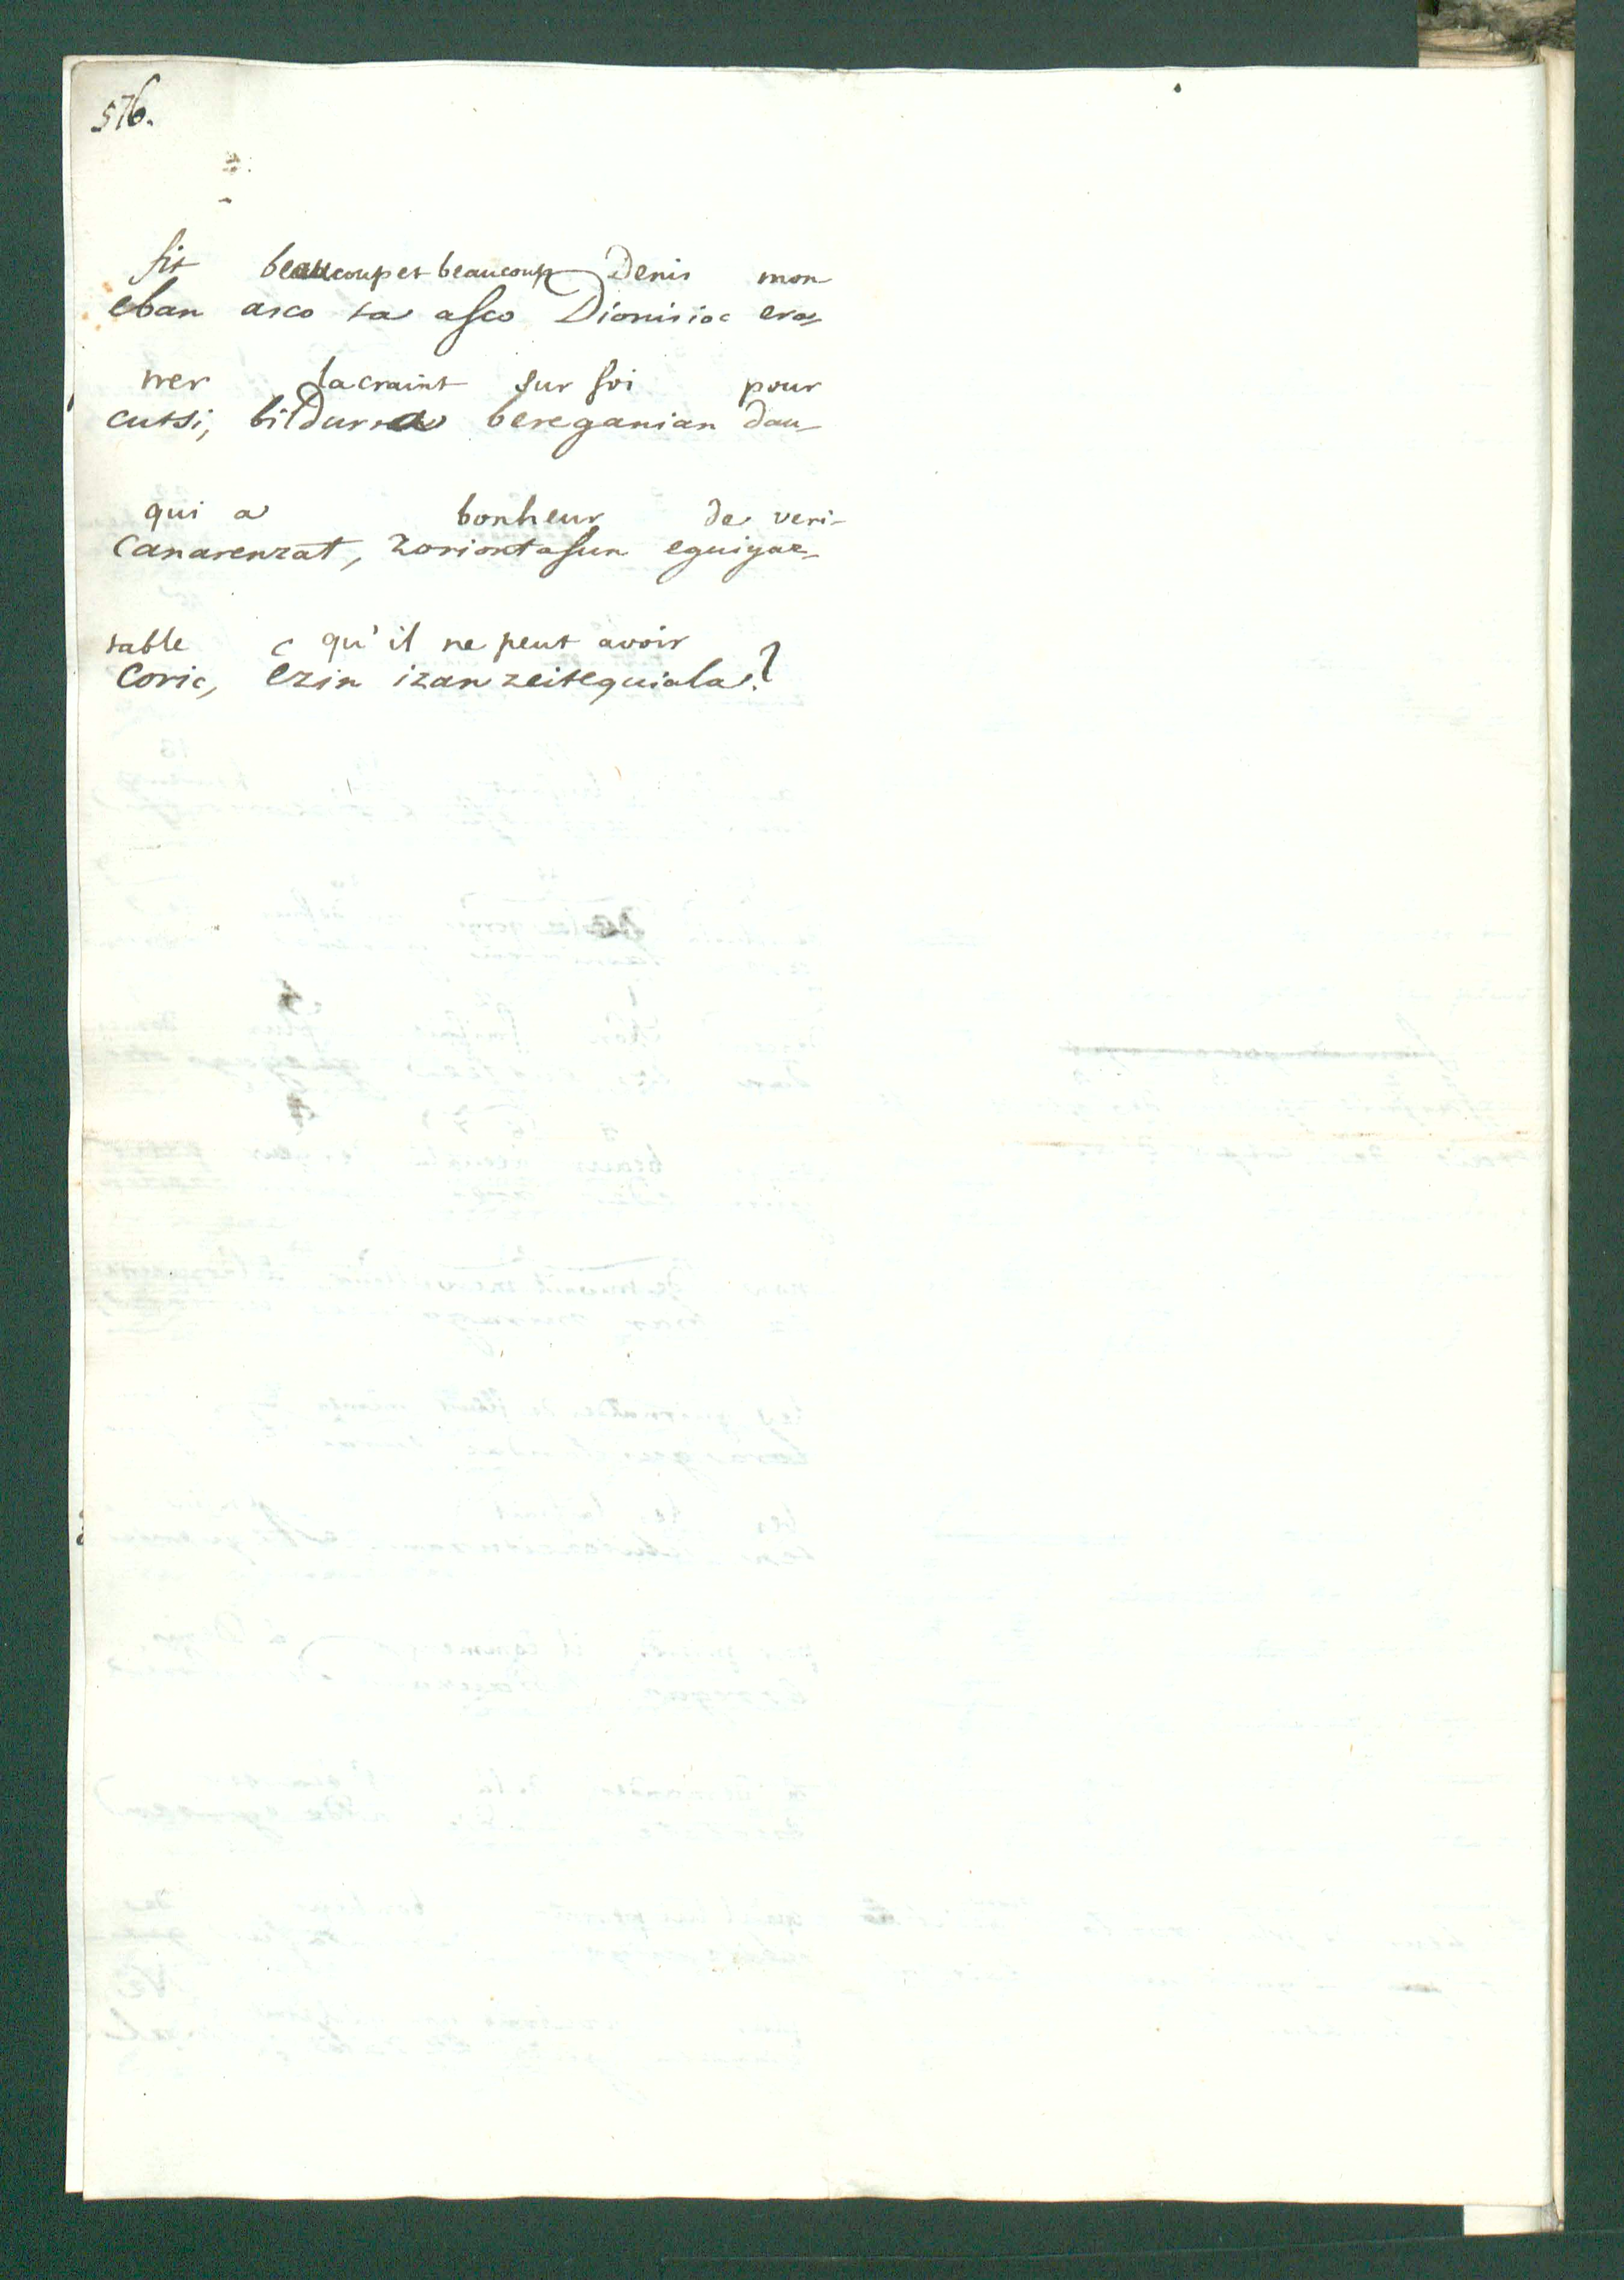 576.
fit beaucoup et beaucoup Denis mon
eban asco ta asco Dionisioc era-
trer la craint sur soi pour
cutsi, bildurra bereganian dau-
qui a bonheur de veri-
canarentzat, zoriontasun eguigaz-
table c qu'il ne peut avoir
coric, ezin izan zeitequiala?